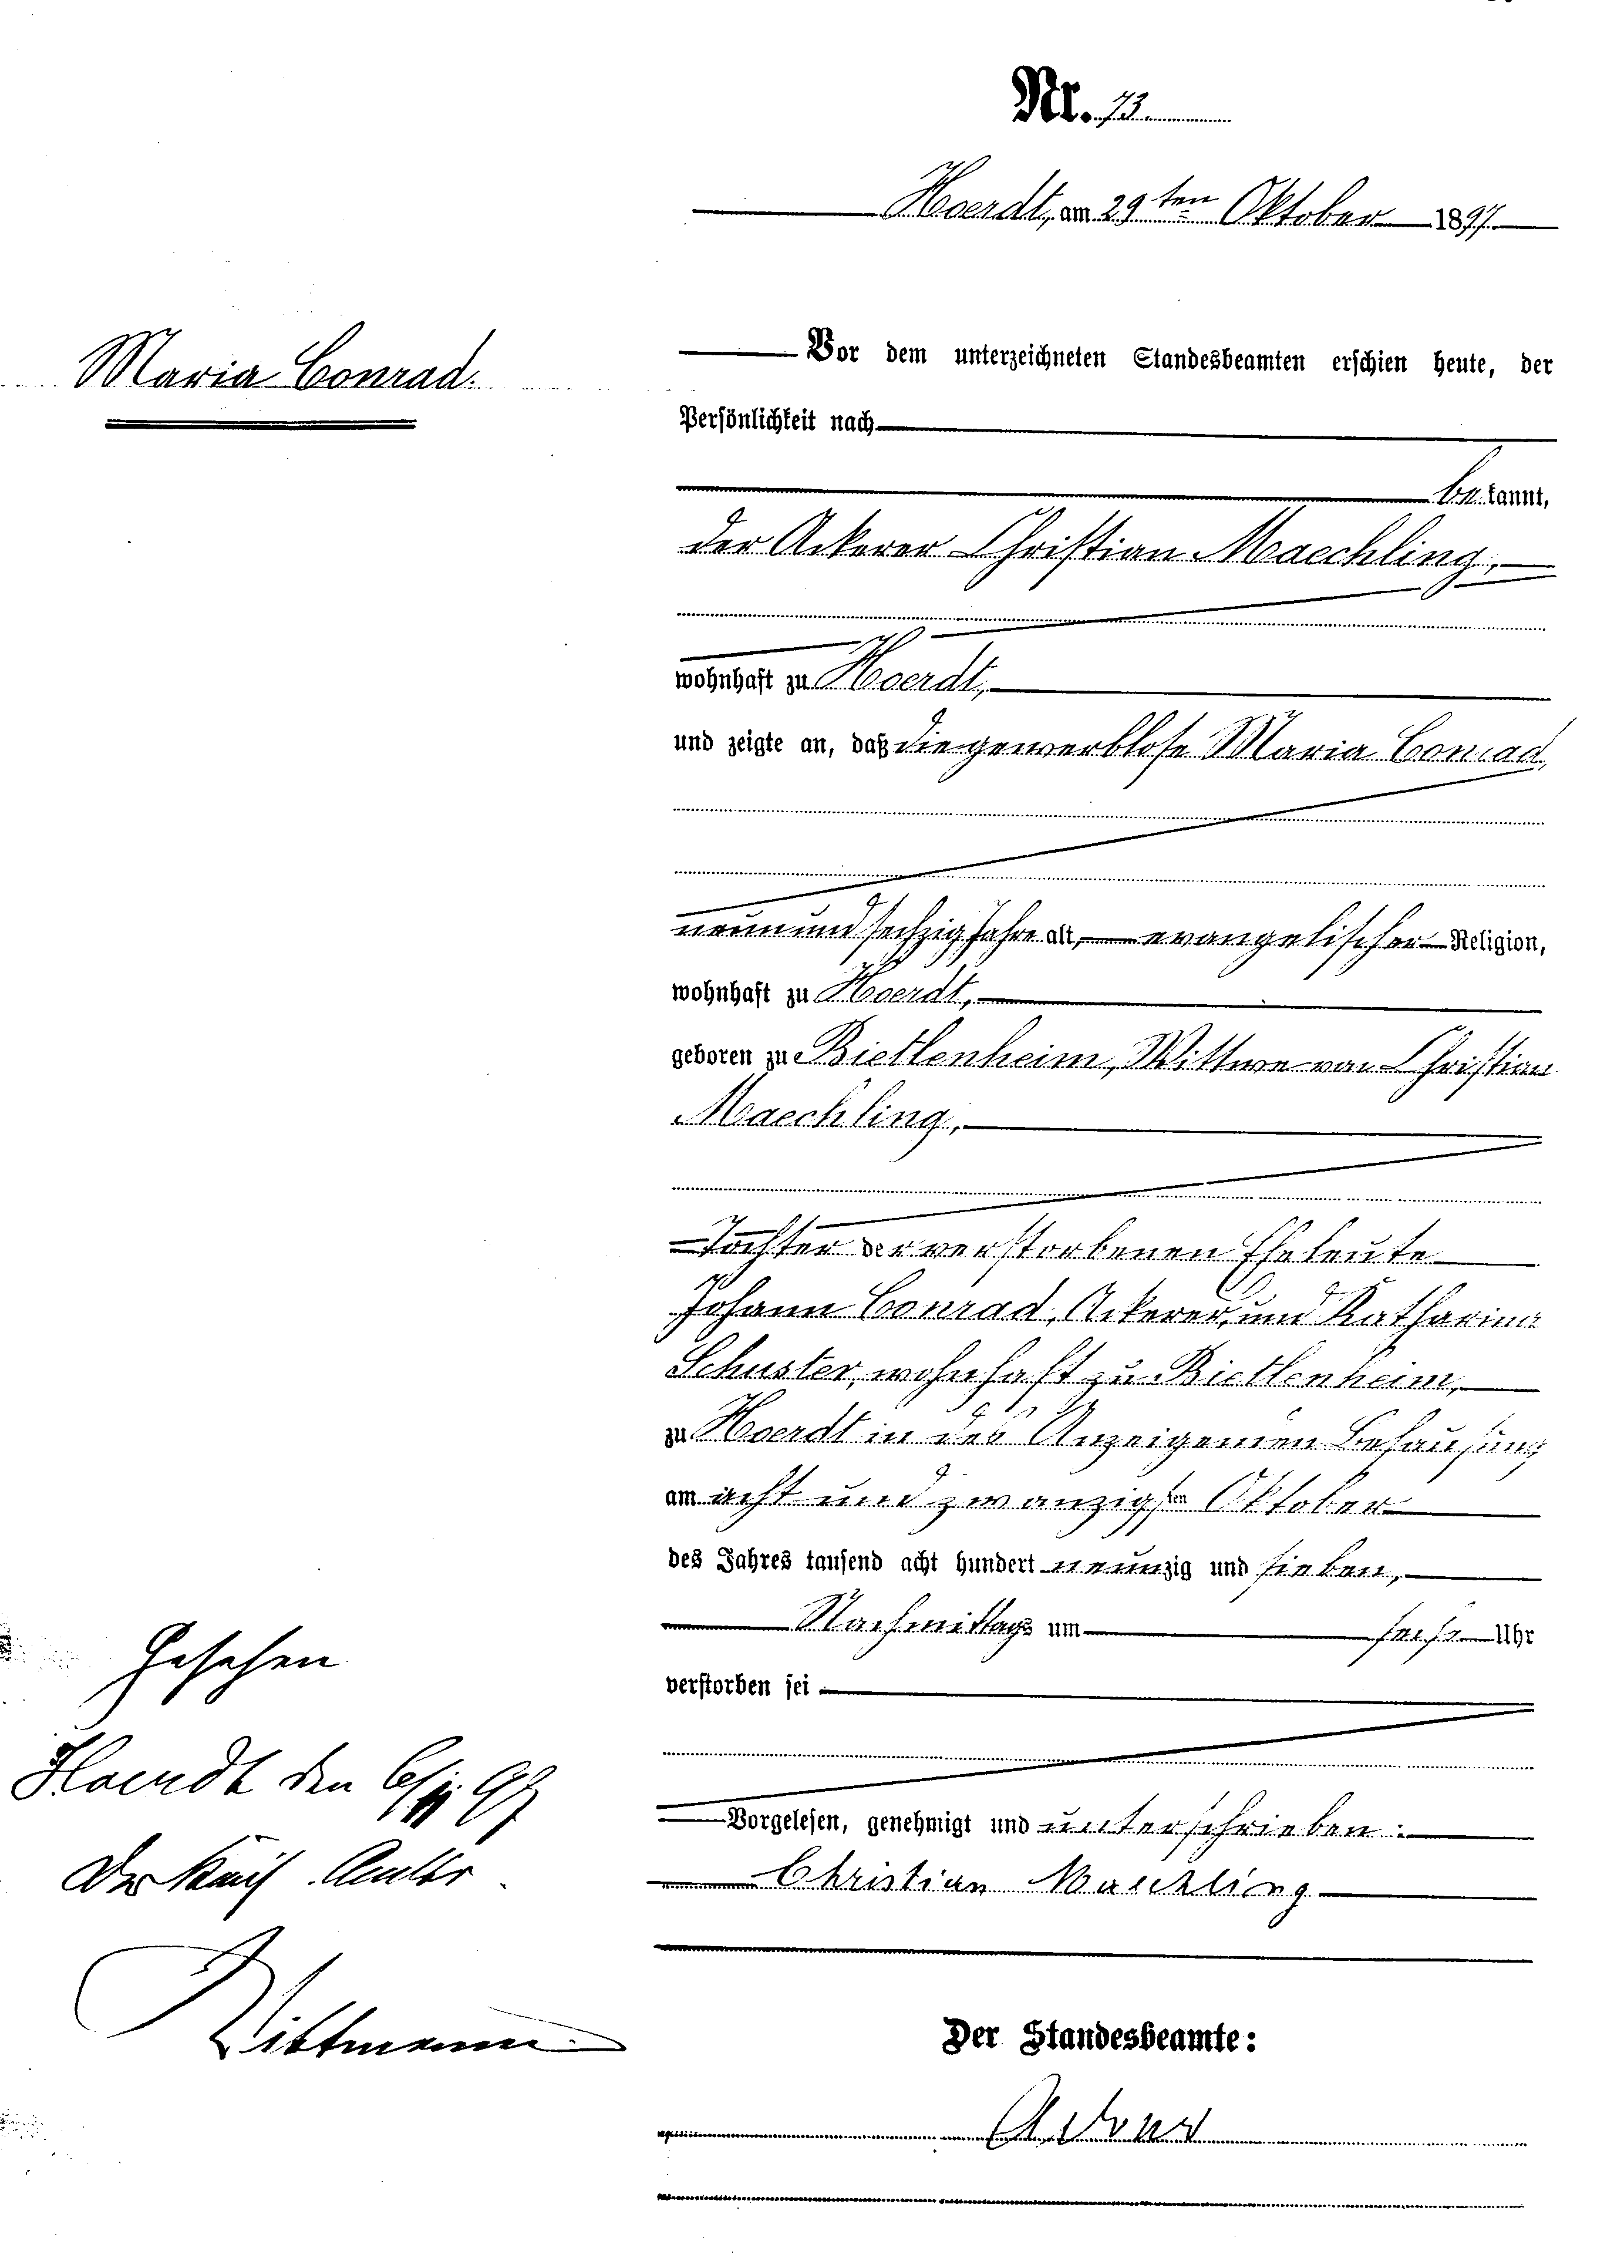 Nr. 73
Hoerdt, am 29ten Oktober 1897
Maria Conrad.
Vor dem unterzeichneten Standesbeamten erschien heute, der
Persönlichkeit nach
bekannt,
der Ackerer Christian Maechling,
wohnhaft zu Hoerdt,
und zeigte an, daß die gewerblose Maria Conrad,
neun und sechzig Jahre alt, evangelischer Religion,
wohnhaft zu Hoerdt,
geboren zu Bietlenheim, Wittwe von Christian
Maechling,
Tochter der verstorbenen Eheleute
Johann Conrad, Ackerer, und Katharina
Schuster, wohnhaft zu Bietlenheim,
zu Hoerdt in des Anzeigenden Behausung
am acht und zwanzigsten Oktober
des Jahres tausend acht hundert neunzig und sieben,
Nachmittags um sechs Uhr
verstorben sei
Vorgelesen, genehmigt und unterschrieben:
Christian Maechling
Der Standesbeamte:
Gesehen
Hoerdt den 6/11 97
Der
Dittmann